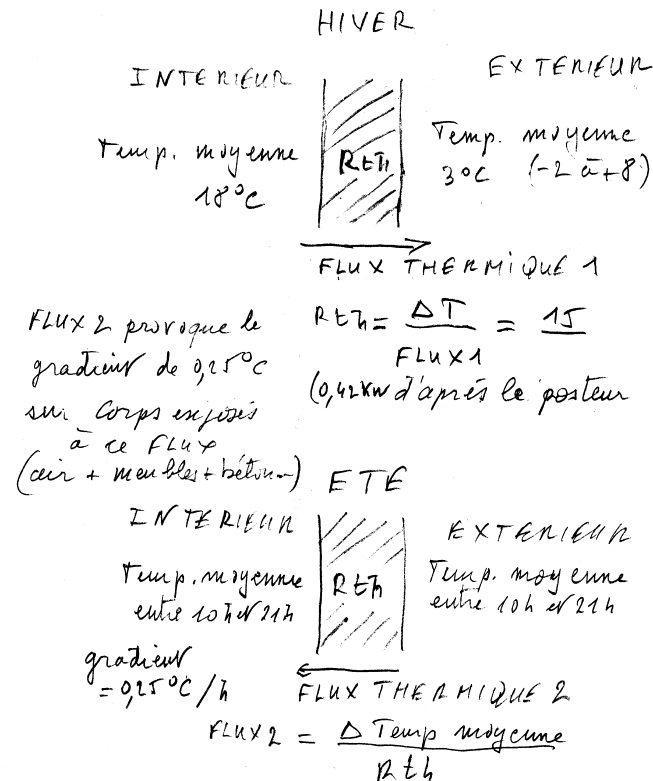 HIVER
INTERIEUR
EXTERIEUR
Temp. moyenne
18°C
Rth
Temp. moyenne
3°C (-2 à +8)
FLUX THERMIQUE 1
Rth = ΔT / FLUX 1 = 15
(0,42 KW d'après le posteur
FLUX 2 provoque le
gradient de 0,25°C
sur Corps exposés
à ce FLUX
(air + meubles + béton...)
ETE
INTERIEUR
EXTERIEUR
Temp. moyenne
entre 10h et 21h
Rth
Temp. moyenne
entre 10h et 21h
gradient
= 0,25°C/h
FLUX THERMIQUE 2
FLUX 2 = Δ Temp moyenne / Rth